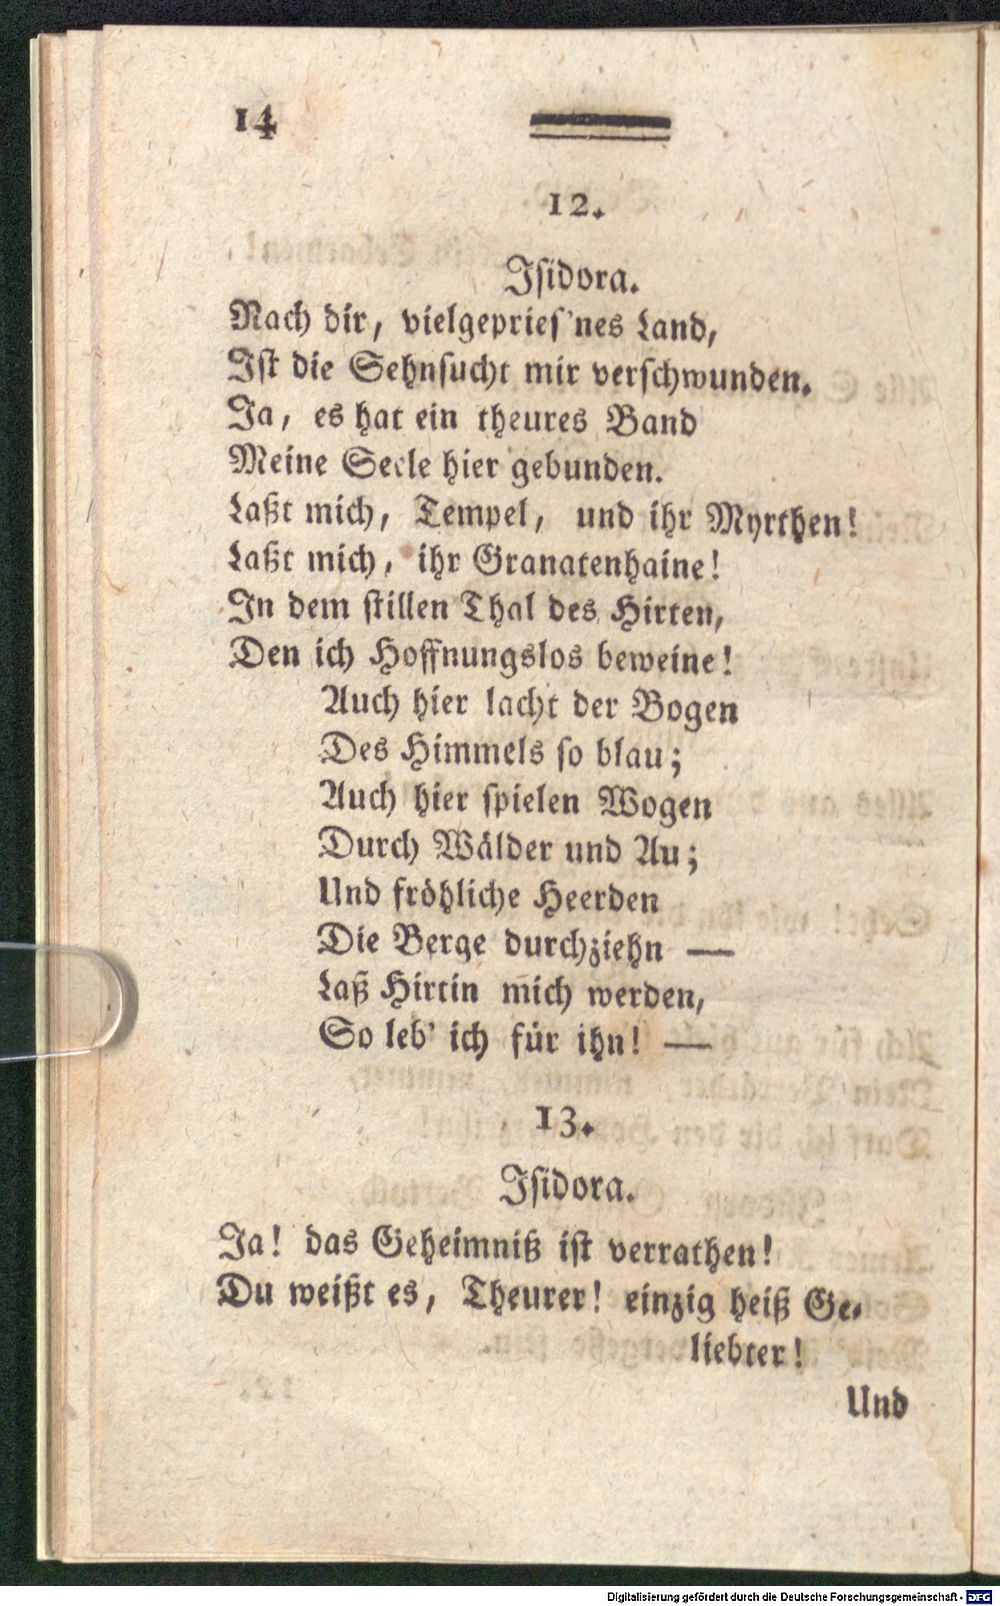 14
12.
Isidora.
Nach dir, vielgepries'nes Land,
Ist die Sehnsucht mir verschwunden.
Ja, es hat ein theures Band
Meine Seele hier gebunden.
Laßt mich, Tempel, und ihr Myrthen!
Laßt mich, ihr Granatenhaine!
In dem stillen Thal des Hirten,
Den ich Hoffnungslos beweine!
Auch hier lacht der Bogen
Des Himmels so blau;
Auch hier spielen Wogen
Durch Wälder und Au;
Und fröhliche Heerden
Die Berge durchziehn —
Laß Hirtin mich werden,
So leb' ich für ihn! —
13.
Isidora.
Ja! das Geheimniß ist verrathen!
Du weißt es, Theurer! einzig heiß Ge-
liebter!
Und
Digitalisierung gefördert durch die Deutsche Forschungsgemeinschaft - DFG